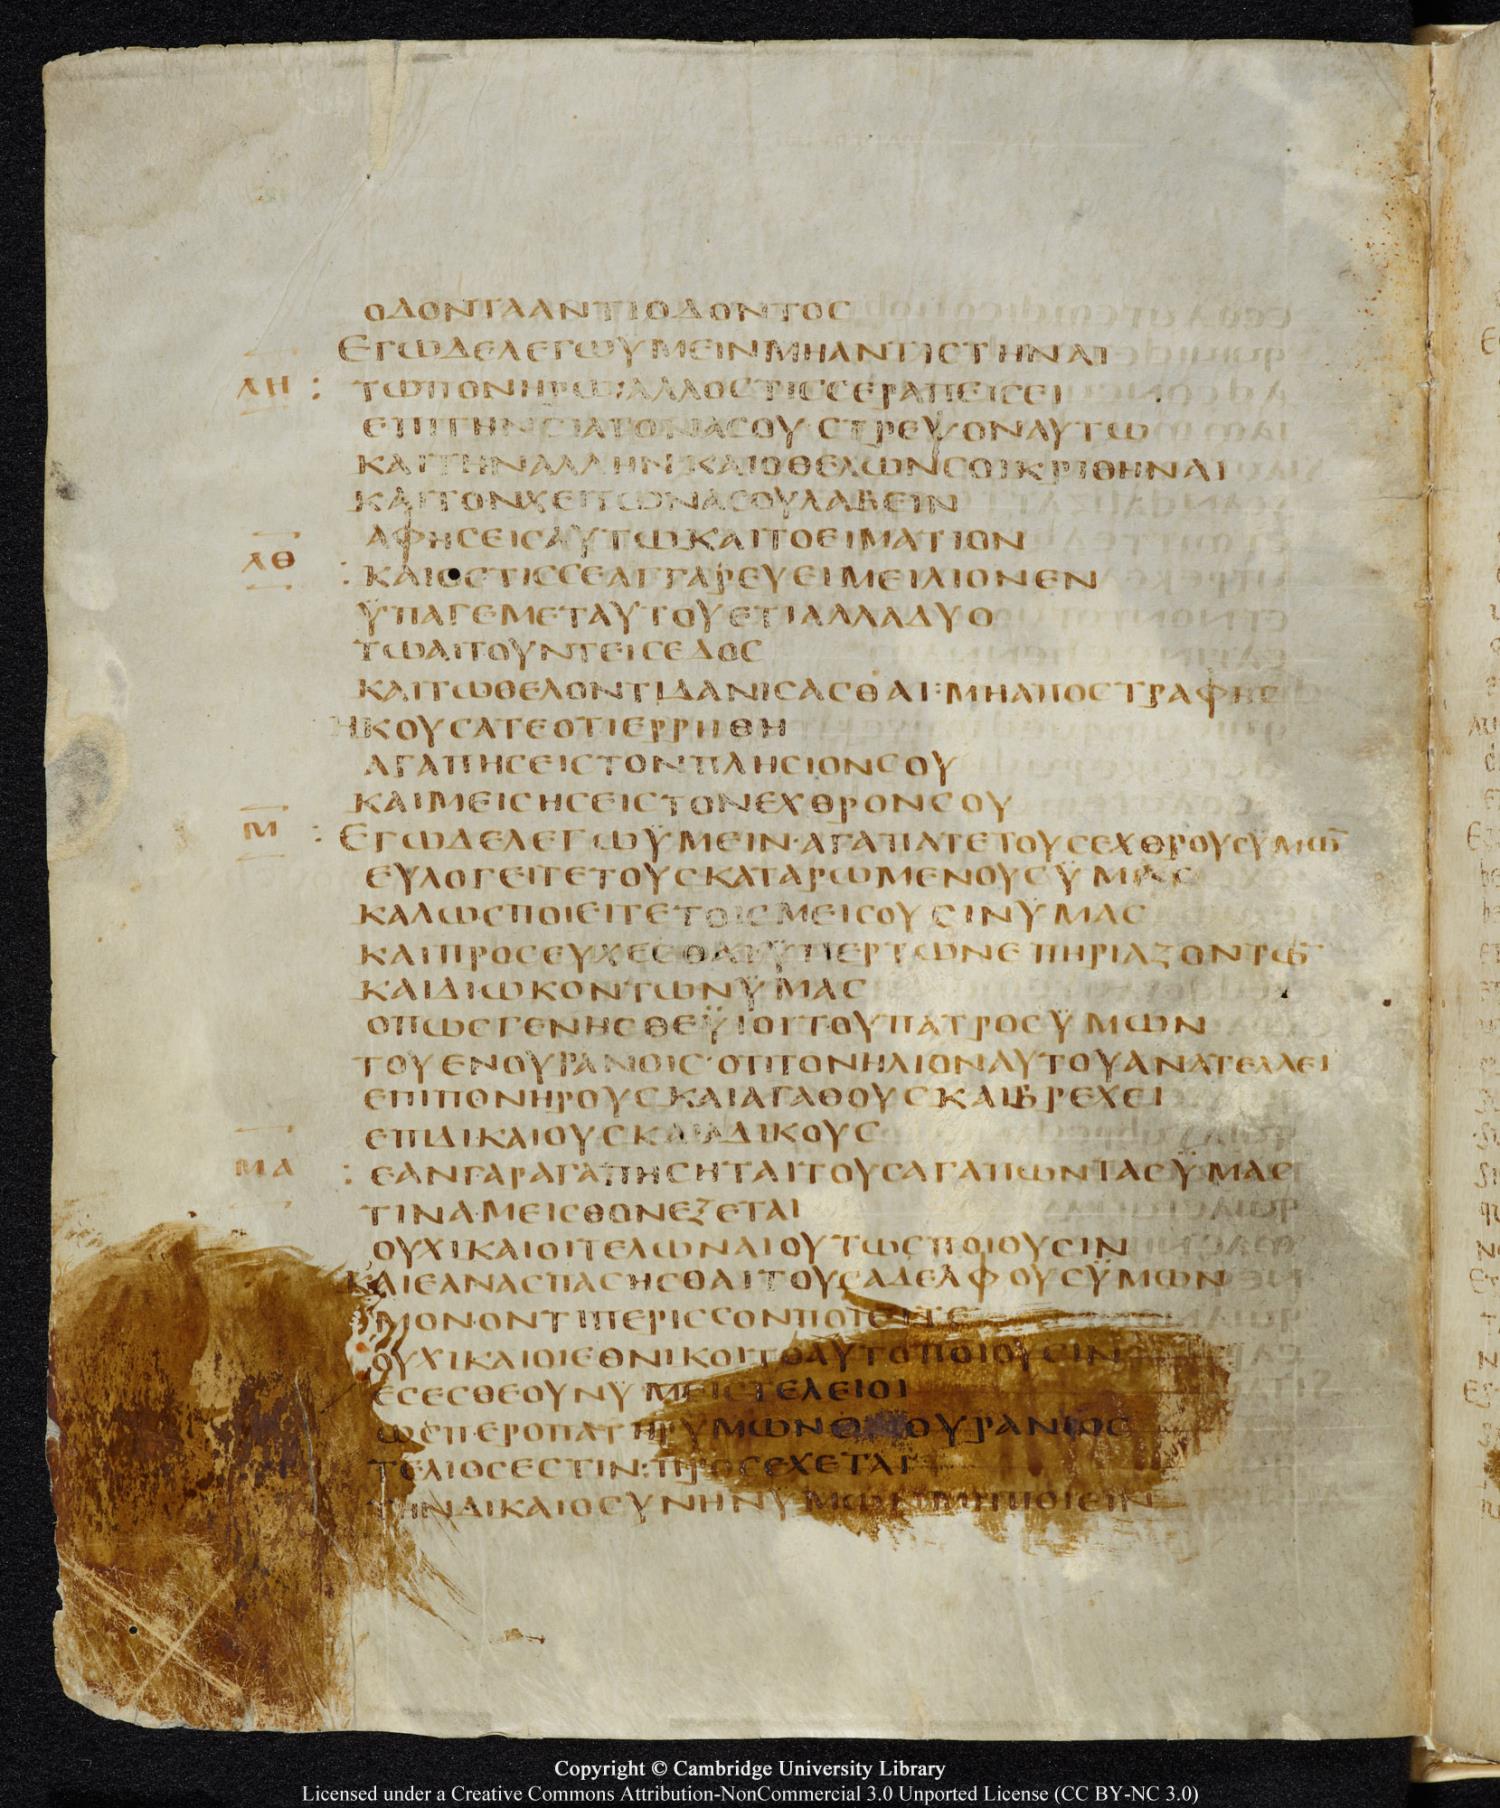 ΟΔΟΝΤΑΑΝΤΙΟΔΟΝΤΟϹ
ΕΓΩΔΕΛΕΓΩΫΜΕΙΝΜΗΑΝΤΙϹΤΗΝΑΙ
ΛΗ : ΤΩΠΟΝΗΡΩ:ΑΛΛΟϹΤΙϹϹΕΡΑΠΕΙϹΕΙ
ΕΠΙΤΗΝϹΙΑΓΟΝΑϹΟΥ·ϹΤΡΕΨΟΝΑΥΤΩ
ΚΑΙΤΗΝΑΛΛΗΝ:ΚΑΙΟΘΕΛΩΝϹΟΙΚΡΙΘΗΝΑΙ
ΚΑΙΤΟΝΧΕΙΤΩΝΑϹΟΥΛΑΒΕΙΝ
ΑΦΗϹΕΙϹΑΥΤΩΚΑΙΤΟΕΙΜΑΤΙΟΝ
ΛΘ : ΚΑΙΟϹΤΙϹϹΕΑΓΓΑΡΕΥΕΙΜΕΙΛΙΟΝΕΝ
ΫΠΑΓΕΜΕΤΑΥΤΟΥΕΤΙΑΛΛΑΔΥΟ
ΤΩΑΙΤΟΥΝΤΕΙϹΕΔΟϹ
ΚΑΙΤΩΘΕΛΟΝΤΙΔΑΝΙϹΑϹΘΑΙ:ΜΗΑΠΟϹΤΡΑΦΗϹ
ΗΚΟΥϹΑΤΕΟΤΙΕΡΡΗΘΗ
ΑΓΑΠΗϹΕΙϹΤΟΝΠΛΗϹΙΟΝϹΟΥ
ΚΑΙΜΕΙϹΗϹΕΙϹΤΟΝΕΧΘΡΟΝϹΟΥ
Μ : ΕΓΩΔΕΛΕΓΩΫΜΕΙΝ·ΑΓΑΠΑΤΕΤΟΥϹΕΧΘΡΟΥϹΫΜΩ̅
ΕΥΛΟΓΕΙΤΕΤΟΥϹΚΑΤΑΡΩΜΕΝΟΥϹΫΜΑϹ
ΚΑΛΩϹΠΟΙΕΙΤΕΤΟΙϹΜΕΙϹΟΥϹΙΝΫΜΑϹ
ΚΑΙΠΡΟϹΕΥΧΕϹΘΑΙΫΠΕΡΤΩΝΕΠΗΡΙΑΖΟΝΤΩ̅
ΚΑΙΔΙΩΚΟΝΤΩΝΫΜΑϹ
ΟΠΩϹΓΕΝΗϹΘΕΫΙΟΙΤΟΥΠΑΤΡΟϹΫΜΩΝ
ΤΟΥΕΝΟΥΡΑΝΟΙϹ·ΟΤΙΤΟΝΗΛΙΟΝΑΥΤΟΥΑΝΑΤΕΛΛΕΙ
ΕΠΙΠΟΝΗΡΟΥϹΚΑΙΑΓΑΘΟΥϹΚΑΙΒΡΕΧΕΙ
ΕΠΙΔΙΚΑΙΟΥϹΚΑΙΑΔΙΚΟΥϹ
ΜΑ : ΕΑΝΓΑΡΑΓΑΠΗϹΗΤΑΙΤΟΥϹΑΓΑΠΩΝΤΑϹΫΜΑϹ
ΤΙΝΑ·ΜΕΙϹΘΟΝΕΞΕΤΑΙ
ΟΥΧΙΚΑΙΟΙΤΕΛΩΝΑΙΟΥΤΩϹΠΟΙΟΥϹΙΝ
ΚΑΙΕΑΝΑϹΠΑϹΗϹΘΑΙΤΟΥϹΑΔΕΛΦΟΥϹΫΜΩΝ
ΜΟΝΟΝΤΙΠΕΡΙϹϹΟΝΠΟΙΕΙΤΕ
ΟΥΧΙΚΑΙΟΙΕΘΝΙΚΟΙΤΟΑΥΤΟΠΟΙΟΥϹΙΝ
ΕϹΕϹΘΕΟΥΝΫΜΕΙϹΤΕΛΕΙΟΙ
ΩϹΠΕΡΟΠΑΤΗΡΫΜΩΝΟ ΟΥΡΑΝΙΟϹ
ΤΕΛΙΟϹΕϹΤΙΝ:ΠΡΟϹΕΧΕΤΑΙ
ΤΗΝΔΙΚΑΙΟϹΥΝΗΝΫΜΩΝΜΗΠΟΙΕΙΝ
Copyright © Cambridge University Library
Licensed under a Creative Commons Attribution-NonCommercial 3.0 Unported License (CC BY-NC 3.0)